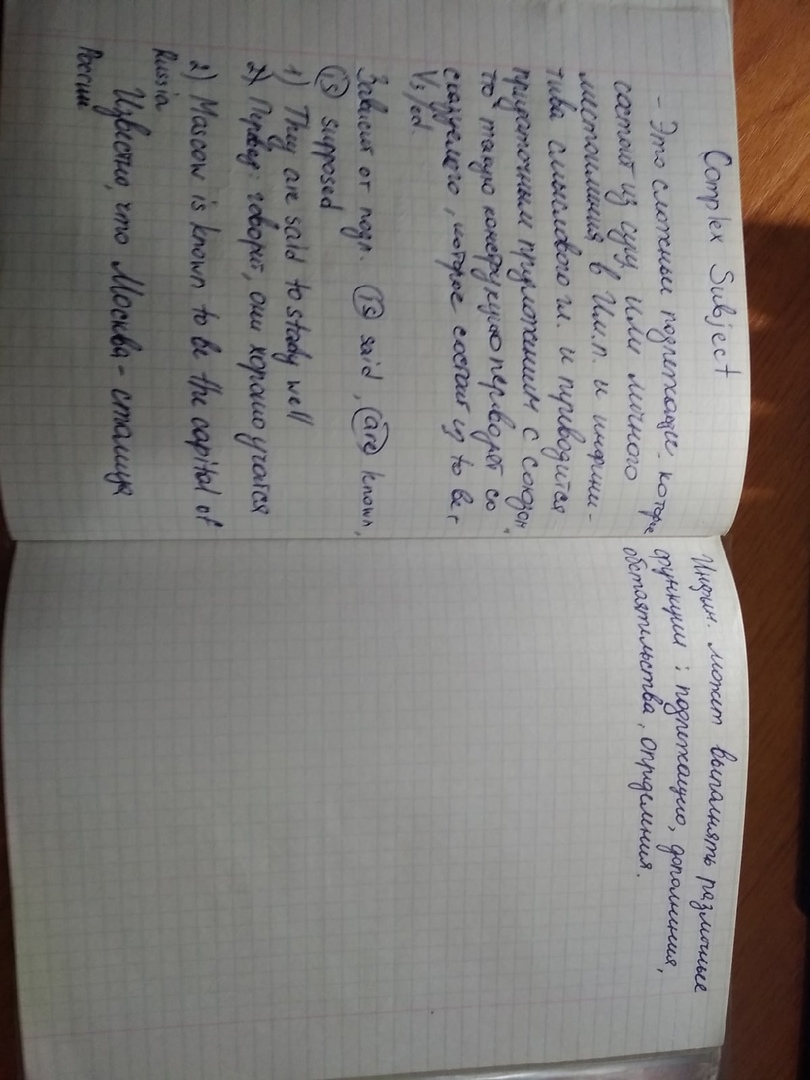 Complex Subject
- Это сложные подлежащие, которое
состоит из сущ. или личного
местоимения в Им.п. и инфини-
тива смыслового гл. и переводится
придаточным предложением с союзом
то" такую конструкцию переводят со
сказуемого, которое состоит из to be и
V3/ed.
Зависит от подл. is said, are known,
is supposed
1) They are said to stady well
2) Перевод: говорит, они хорошо учатся
2) Moscow is known to be the capital of
Russia
Известно, что Москва - столица
России
Инфин. может выполнять различные
функции: подлежащию, дополнения,
обстоятельства, определения.